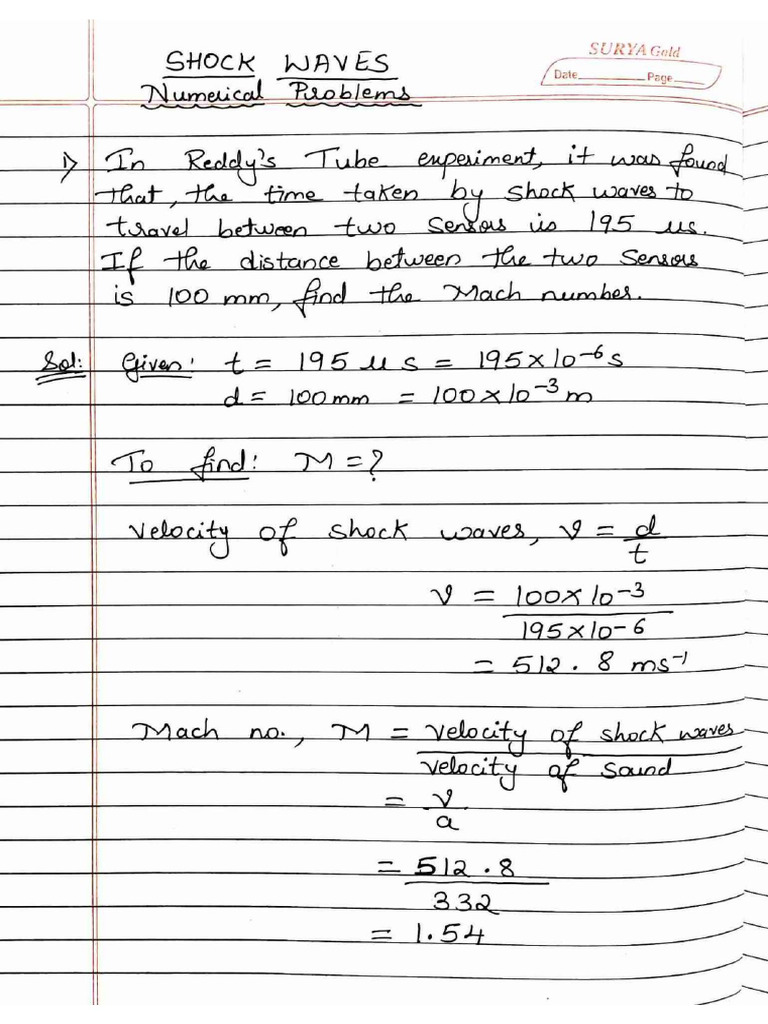 SURYA Gold
Date________ Page____
SHOCK WAVES
Numerical Problems
1) In Reddy's Tube experiment, it was found
that, the time taken by shock waves to
travel between two sensors is 195 μs.
If the distance between the two sensors
is 100 mm, find the Mach number.
Sol: Given: t = 195 μs = 195×10⁻⁶s
d = 100mm = 100×10⁻³m
To find: M = ?
Velocity of shock waves, v = d/t
v = 100×10⁻³/195×10-6
= 512.8 ms⁻¹
Mach no., M = velocity of shock waves/velocity of sound
= v/a
= 512.8/332
= 1.54